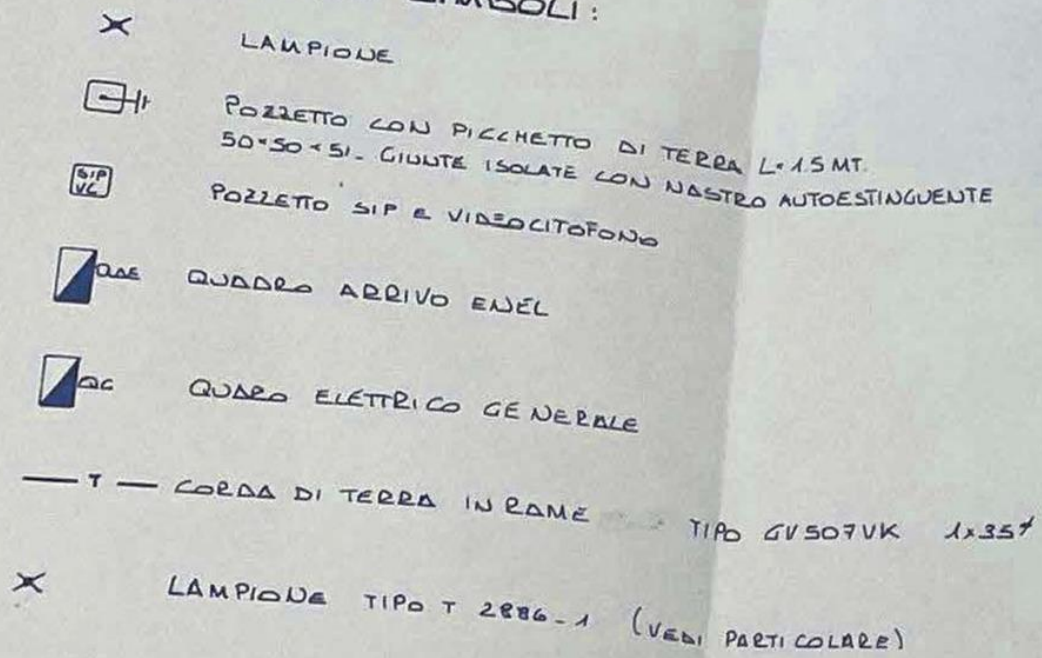 SIMBOLI:
LAMPIONE
POZZETTO CON PICCHETTO DI TERRA L=1.5 MT.
50×50×51- GIUNTE ISOLATE CON NASTRO AUTOESTINGUENTE
SIP
VC
POZZETTO SIP E VIDEOCITOFONO
QAE QUADRO ARRIVO ENEL
QG QUARO ELETTRICO GENERALE
— T — CORDA DI TERRA IN RAME TIPO GV507VK 1x35
LAMPIONE TIPO T 2886-1 (VEDI PARTICOLARE)